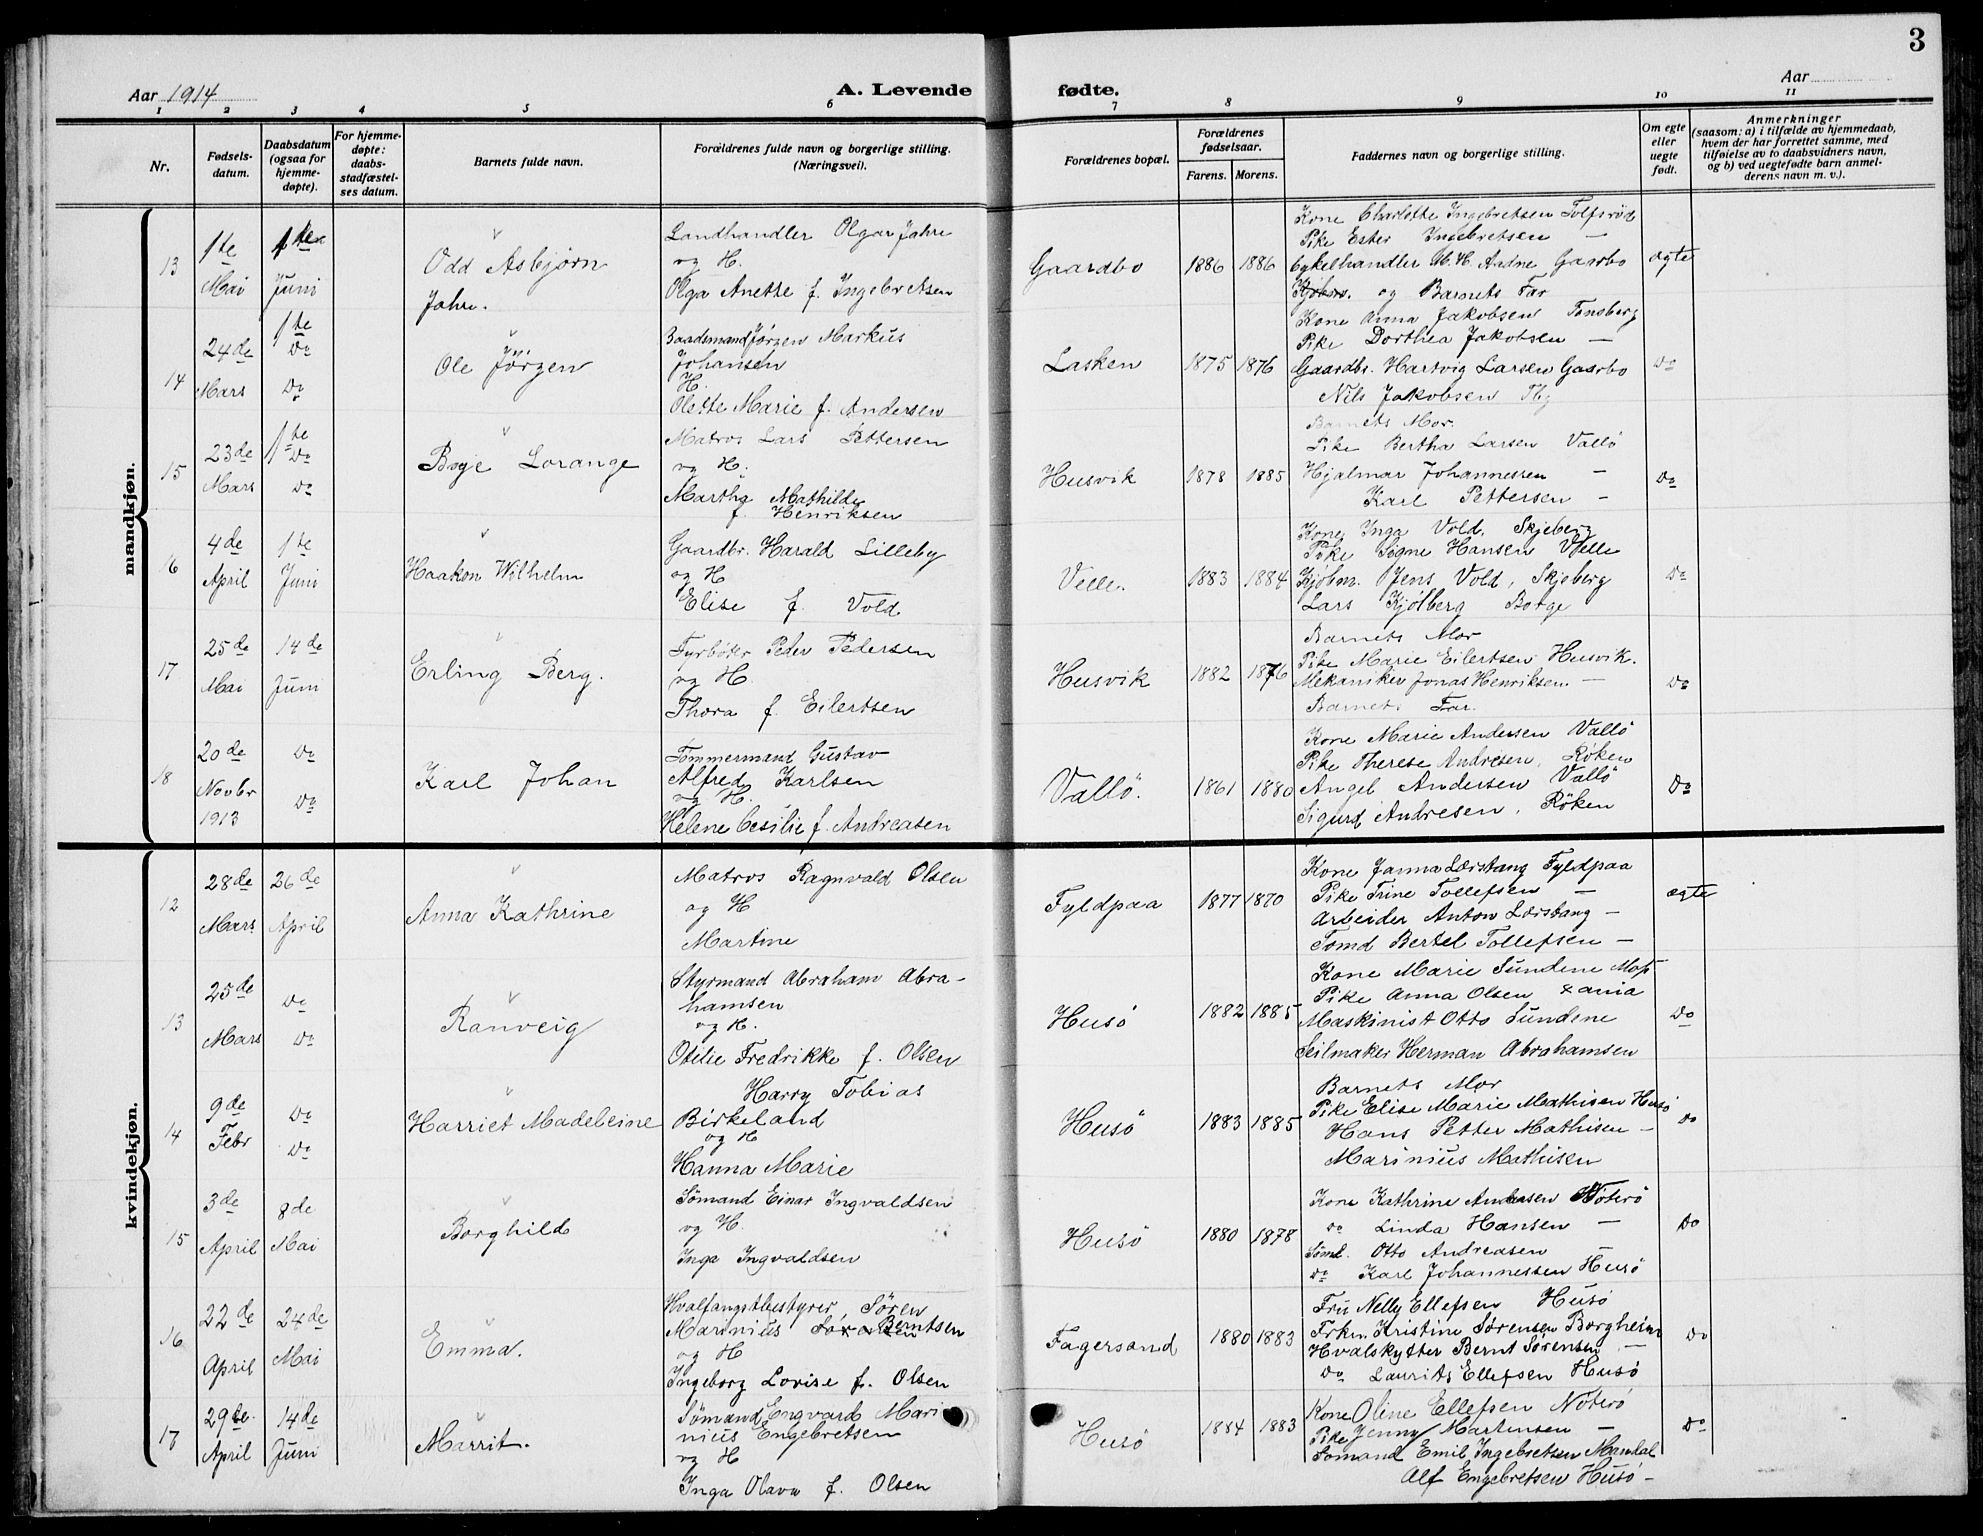 3
Aar 1914
A. Levende fødte.
Aar
1 2 3 4 5 6 7 8 9 10 11
Nr.
Fødsels-
datum.
Daabsdatum
(ogsaa for
hjemme-
døpte).
For hjemme-
døpte:
daabs-
stadfæstel-
ses datum.
Barnets fulde navn.
Forældrenes fulde navn og borgerlige stilling.
(Næringsvei).
Forældrenes bopæl.
Forældrenes
fødselsaar.
Farens. Morens.
Faddernes navn og borgerlige stilling.
Om egte
eller
uegte
født.
Anmerkninger
(saasom: a) i tilfælde av hjemmedaab,
hvem der har forrettet samme, med
tilføielse av to daabsvidners navn,
og b) ved uegtefødte barn anmel-
derens navn m. v.).
mandkjøn.
13
1te
Mai
1te
Juni
Odd Asbjørn
Jahre.
Landhandler Olgar Jahre
og H.
Olga Anette f. Ingebretsen
Gaardbo
1886 1886
Kone Charlotte Ingebretsen Tolfsrød
Pike Ester Ingebretsen —
Cykelhandler M. H. Aadne Gaarbo
og Barnets Far
ægte
14
24de
Mars
1te
Do
Do
Ole Jörgen
Baadsmand Jørgen Markus
Johansen
H.
Olette Marie f. Andersen
Lasken
1875 1876
Kone Anna Jakobsen Tønsberg
Pike Dorthea Jakobsen —
Gaardbr. Hartvig Larsen Gaarbo
Nils Jakobsen Tbg
Do
15
23de
Mars
1te
Do
Do
Boye Lorange
Matros Lars Pettersen
og H.
Martha Mathilde
f. Henriksen
Husvik
1878 1885
Barnets Mor.
Pike Bertha Larsen Vallö
Hjalmar Johannessen —
Karl Pettersen —
Do
16
4de
April
1te
Juni
Haakon Wilhelm
Gaardbr. Harald Lilleby
og H
Elise f. Vold
Velle.
1883 1884
Kone Inga Vold, Skjeberg
Pike Signe Hansen Velle
Kjøbm. Jens Vold, Skjeberg
Lars Kjølberg Borge
Do
17
25de
Mai
14de
Juni
Erling Berg.
Fyrbøter Peder Pedersen
og H.
Thora f. Eilertsen
Husvik
1882 1876
Barnets Mor
Pike Marie Eilertsen Husvik.
Mekaniker Jonas Henriksen —
Barnets Far.
Do
18
20de
Novbr
1913
Do
Do
Karl Johan
Tømmermand Gustav
Alfred Karlsen
og H.
Helene Cesilie f. Andreasen
Vallö.
1861 1880
Kone Marie Andersen Vallö
Pike Therese Andresen, Röken
Angel Andersen Vallö
Sigurd Andresen, Röken
Do
kvindekjøn.
12
28de
Mars
26de
April
Anna Kathrine
Matros Ragnvald Olsen
og H
Martine
Fyldpaa
1877 1870
Kone Janna Lærstang Fyldpaa
Pike Trine Tollefsen —
Arbeider Anton Lærstang —
Tomd Bertel Tollefsen —
ægte
13
25de
Mars
Do
Do
Ranveig
Styrmand Abraham Abra-
hamsen
og H.
Otilie Fredrikke f. Olsen
Husö
1882 1885
Kone Marie Sundene Moss
Pike Anna Olsen
Maskinist Otto Sundene
Seilmaker Herman Abrahamsen
Do
14
9de
Febr
Do
Do
Harriet Madeleine
Harry Tobias
Birkeland
og H
Hanna Marie
Husö
1883 1885
Barnets Mor
Pike Elise Marie Mathisen Husö
Hans Petter Mathisen —
Marinius Mathisen
Do
15
3de
April
8de
Mai
Borghild
Sömand Einar Ingvaldsen
og H.
Inga Ingvaldsen
Husö
1880 1878
Kone Kathrine Andreasen Nöterö
Do Linda Hansen —
Sömd. Otto Andreasen —
Do Karl Johannessen Husö
Do
16
22de
April
24de
Mai
Emma.
Hvalfangstbestyrer, Sören
Marinius Berntsen
og H
Ingeborg Lovise f. Olsen
Fagersand
1880 1883
Fru Nelly Ellefsen Husö
Frkn. Kristine Sørensen Borgheim
Hvalskytter Bernt Sörensen —
Do Laurits Ellefsen Husö
Do
17
29de.
April
14de
Juni
Marrit.
Sömand Engvard Mari
nius Engebretsen
og H
Inga Olava f. Olsen
Husö
1884 1883
Kone Oline Ellefsen Nöterö
Pike Jenny Martensen —
Sömand Emil Ingebretsen Mandal
Alf Engebretsen Husö —
Do